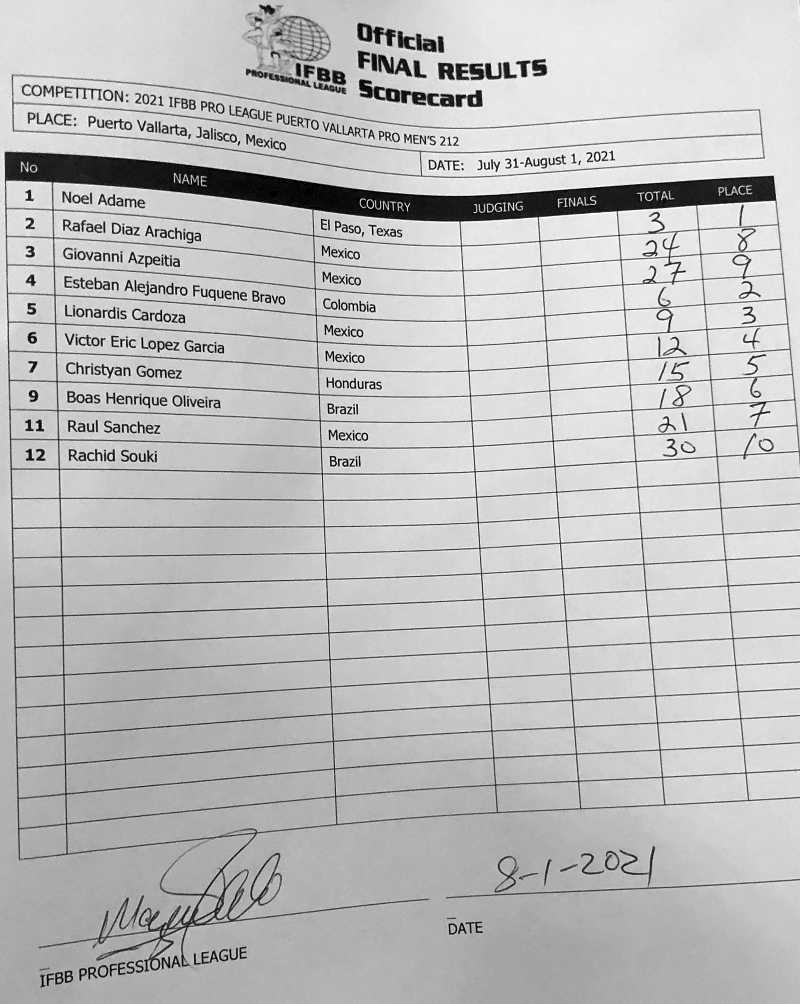 Official
FINAL RESULTS
Scorecard
IFBB
PROFESSIONAL LEAGUE
COMPETITION: 2021 IFBB PRO LEAGUE PUERTO VALLARTA PRO MEN'S 212
PLACE: Puerto Vallarta, Jalisco, Mexico
DATE: July 31-August 1, 2021
No NAME COUNTRY JUDGING FINALS TOTAL PLACE
1 Noel Adame El Paso, Texas 3 1
2 Rafael Diaz Arachiga Mexico 24 8
3 Giovanni Azpeitia Mexico 27 9
4 Esteban Alejandro Fuquene Bravo Colombia 6 2
5 Lionardis Cardoza Mexico 9 3
6 Victor Eric Lopez Garcia Mexico 12 4
7 Christyan Gomez Honduras 15 5
9 Boas Henrique Oliveira Brazil 18 6
11 Raul Sanchez Mexico 21 7
12 Rachid Souki Brazil 30 10
8-1-2021
IFBB PROFESSIONAL LEAGUE
DATE